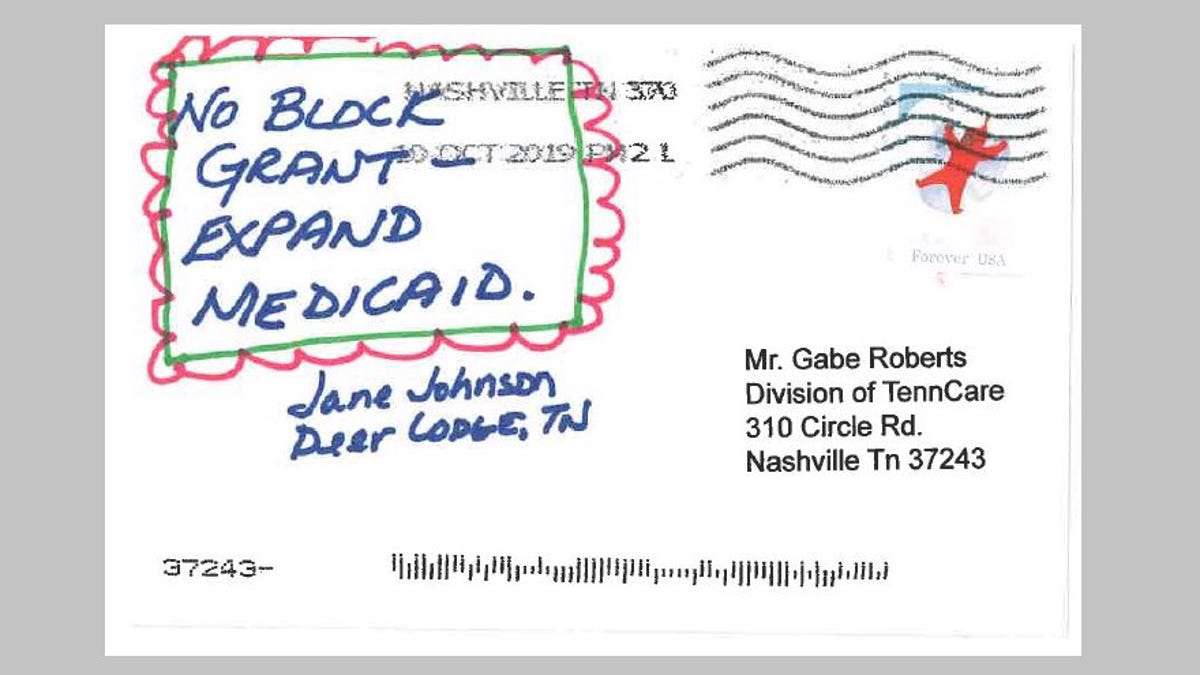 NO BLOCK
GRANT –
EXPAND
MEDICAID.
NASHVILLE TN 370
10 OCT 2019 PM 2 L
Forever USA
Jane Johnson
Deer LODGE, TN
Mr. Gabe Roberts
Division of TennCare
310 Circle Rd.
Nashville Tn 37243
37243-